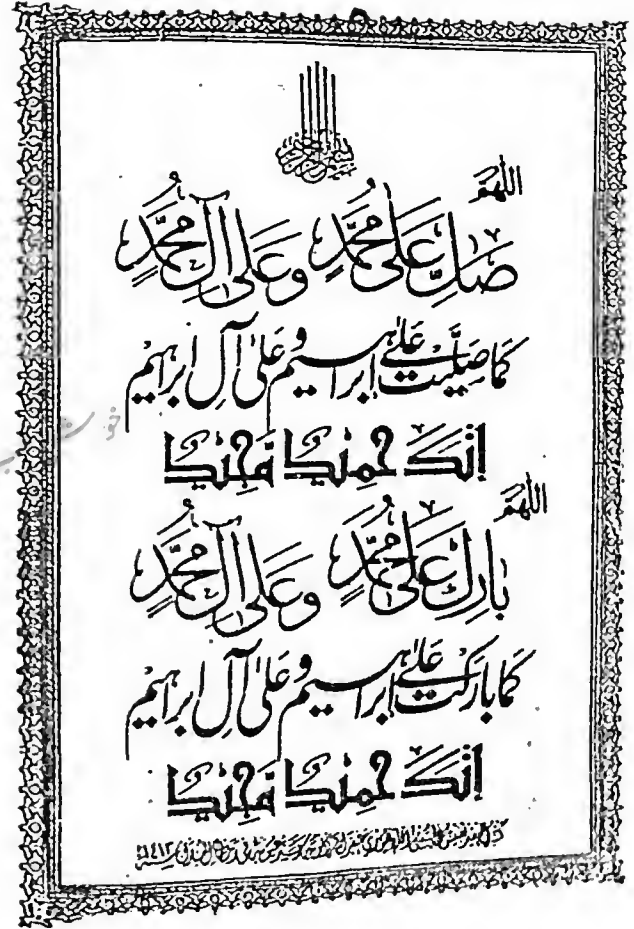 بسم الله الرحمن الرحيم
اللهم
صل على محمد وعلى آل محمد
كما صليت على إبراهيم وعلى آل إبراهيم
إنك حميد مجيد
اللهم
بارك على محمد وعلى آل محمد
كما باركت على إبراهيم وعلى آل إبراهيم
إنك حميد مجيد